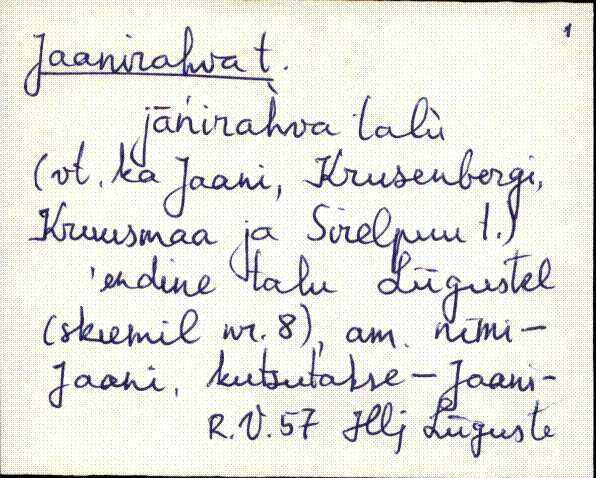 1
Jaanirahva t.
jāńirahva talù
(vt. ka Jaani, Krusenbergi,
Kruusmaa ja Sirelpuu t.)
'endine talu Lügustel
(skeemil nr. 8), am. nimi –
Jaani, kutsutakse – Jaani-
R.V. 57 Hlj Lüguste